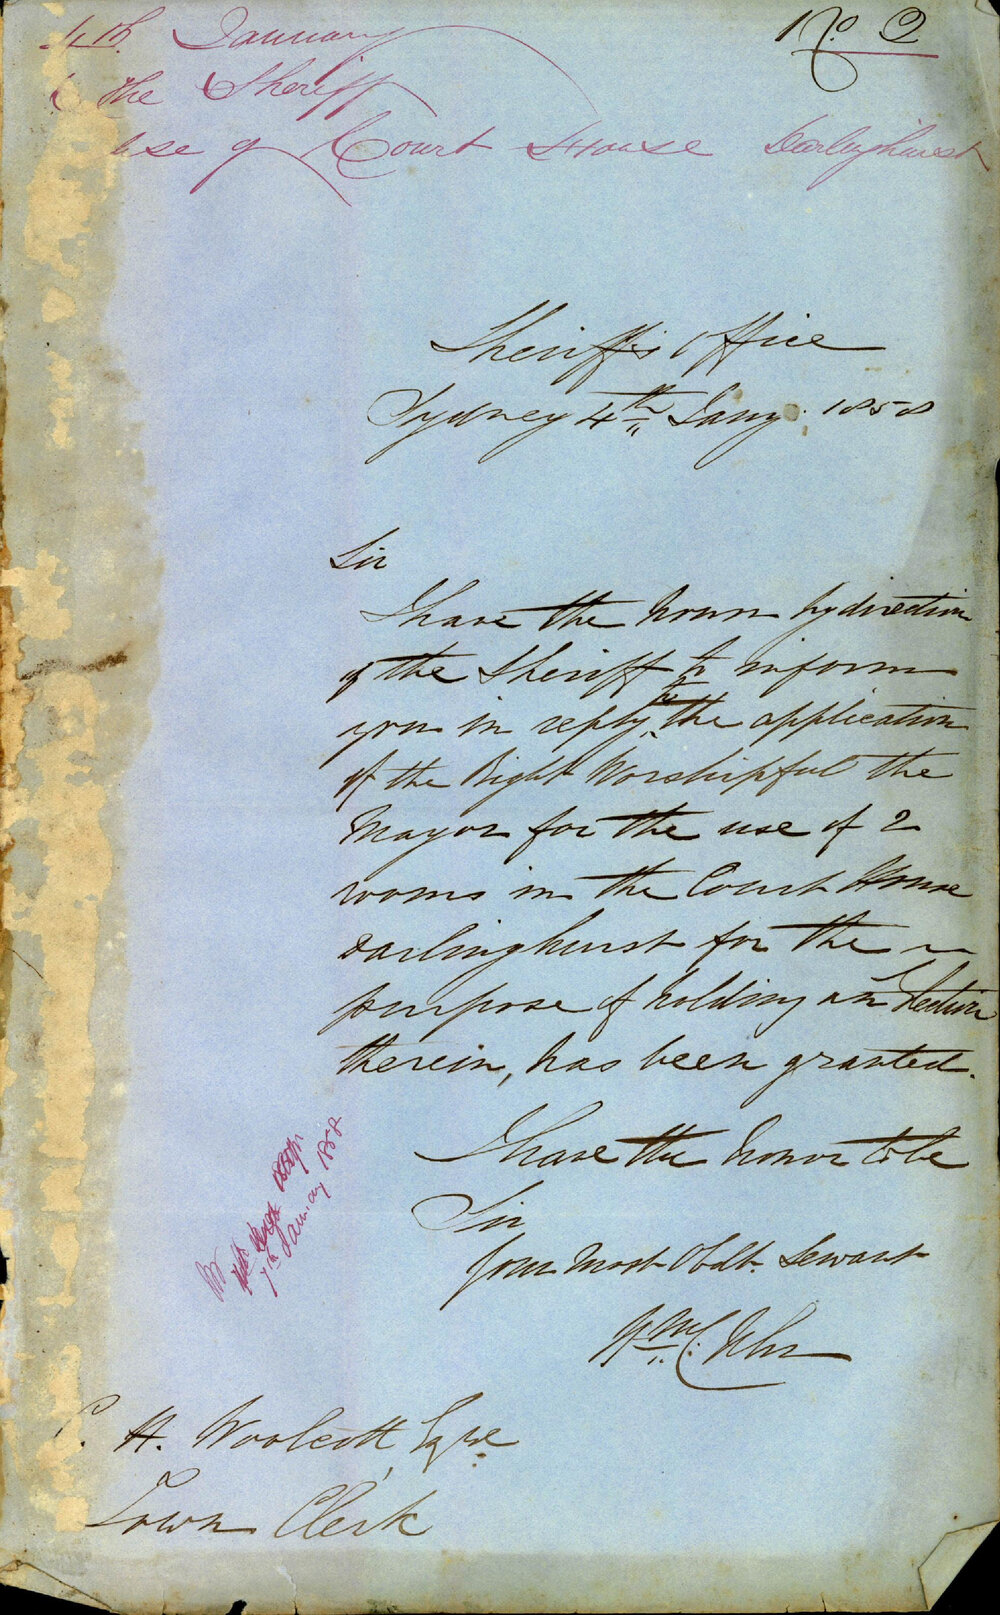 No. 2
4th January
the Sheriff
use of Court House Darlinghurst
Sheriff's Office
Sydney 4th Jany. 1858
Sir
I have the honor by direction
of the Sheriff to inform
you in reply to the application
of the Right Worshipful the
Mayor for the use of 2
rooms in the Court House
Darlinghurst for the
purpose of holding an Election
therein, has been granted.
I have the honor to be
Sir
Your most Obdt. Servant
Wm. C. Uhr
7th January 1858
C. H. Woolcott, Esqre.
Town Clerk